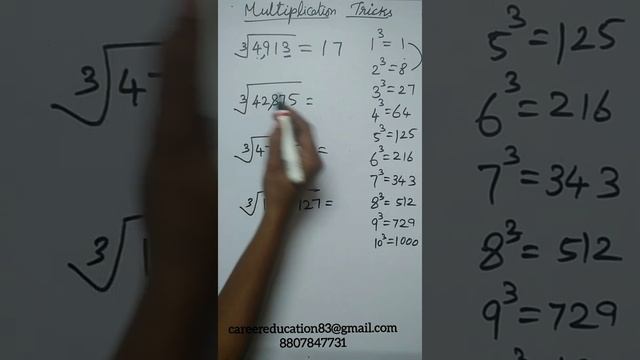 Multiplication Tricks
∛4,913 = 17
∛42,875 =
∛4
=
∛1
127 =
1³ = 1
2³ = 8
3³ = 27
4³ = 64
5³ = 125
6³ = 216
7³ = 343
8³ = 512
9³ = 729
10³ = 1000
careereducation83@gmail.com
8807847731
∛4
∛1
5³ = 125
6³ = 216
7³ = 343
8³ = 512
9³ = 729